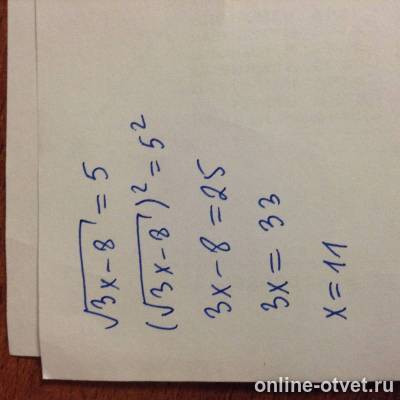 √3x-8 = 5
(√3x-8)² = 5²
3x-8 = 25
3x = 33
x = 11
online-otvet.ru